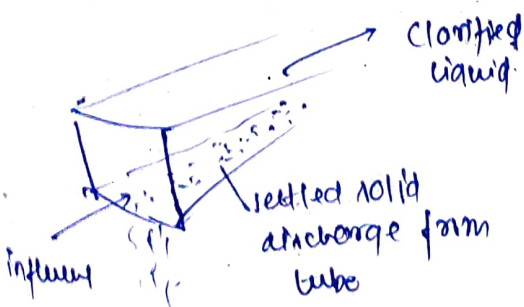 Clarified
liquid.
settled solid
discharge from
tube
influent